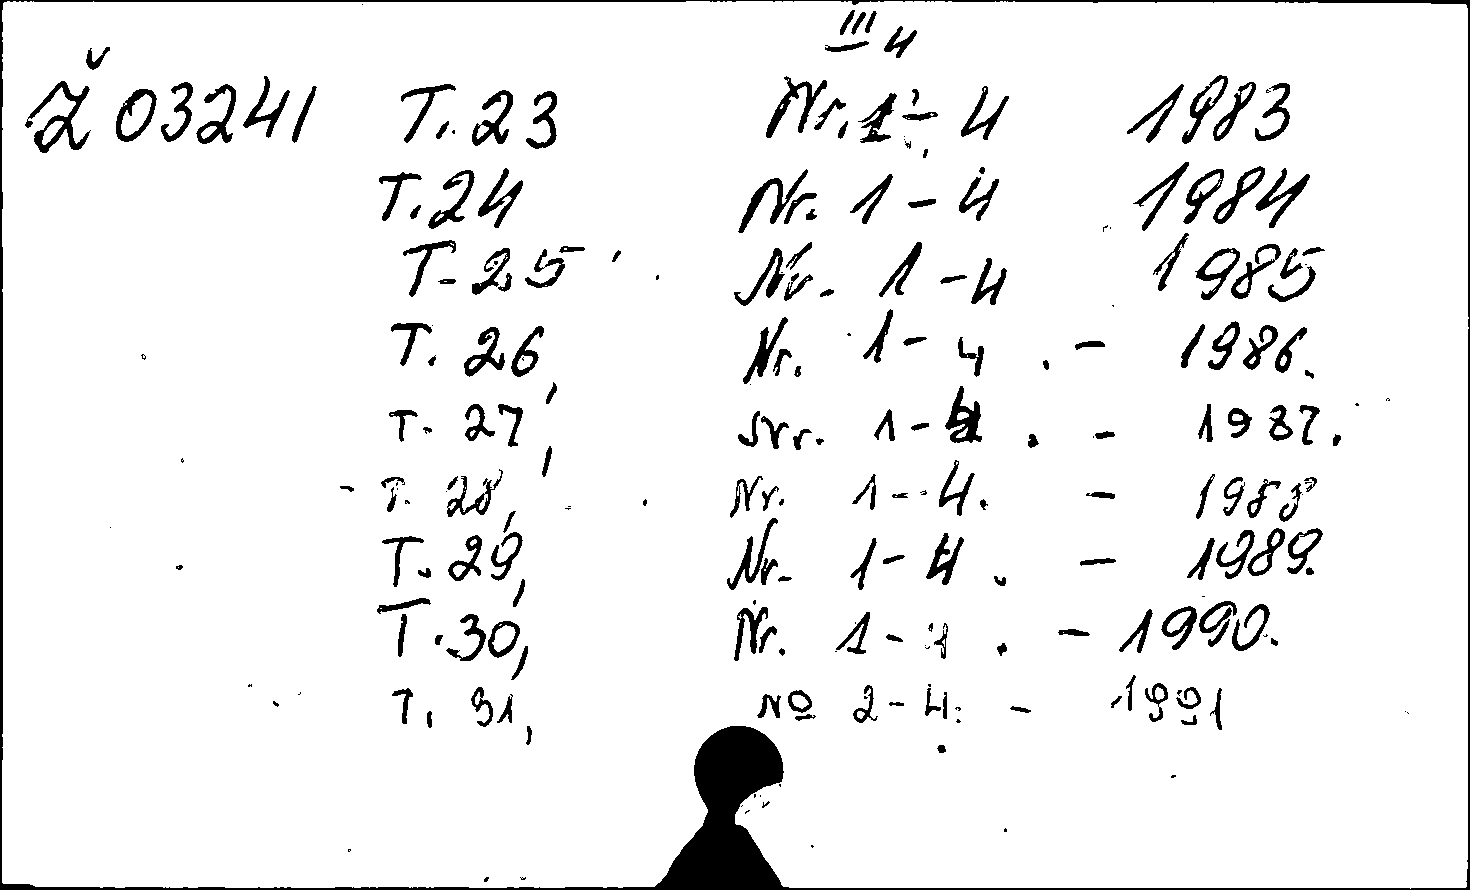 III 4
Ž 03241 T. 23 Nr. 1-4 1983
T. 24 Nr. 1-4 1984
T. 25 Nr. 1-4 1985
T. 26, Nr. 1-4. - 1986.
T. 27, Nr. 1-4. - 1987.
T. 28, Nr. 1-4. - 1988
T. 29, Nr. 1-4. - 1989.
T. 30, Nr. 1-4. - 1990.
T. 31, № 2-4. - 1991